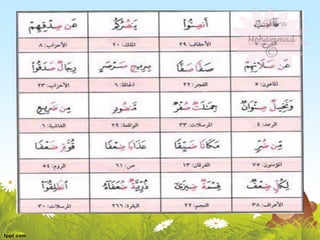 أَنصِتُوا يَنصُرُكُمْ عَن صِدْقِهِمْ
Mohammad
©
الأحقاف: ٢٩ الملك: ٢٠ الأحزاب: ٨
عَن صَلَاتِهِمْ صَفًّا صَفًّا بِرِيحٍ صَرْصَرٍ رِجَالٌ صَدَقُوا
الماعون: ٥ الفجر: ٢٢ الحاقة: ٦ الأحزاب: ٢٣
وَنَخِيلٌ صِنْوَانٌ جِمَٰلَتٌ صُفْرٌ مَنضُودٍ مِن ضَرِيعٍ
الرعد: ٤ المرسلات: ٣٣ الواقعة: ٢٩ الغاشية: ٦
مِن ضُرٍّ مَكَانًا ضَيِّقًا عَذَابًا ضِعْفًا قُوَّةٍ ضَعْفًا
المؤمنون: ٧٥ الفرقان: ١٣ ص: ٦١ الروم: ٥٤
لِكُلٍّ ضِعْفٌ قِسْمَةٌ ضِيزَىٰ ذُرِّيَّةٌ ضُعَفَاءُ انطَلِقُوا
الأعراف: ٣٨ النجم: ٢٢ البقرة: ٢٦٦ المرسلات: ٣٠
fppt.com